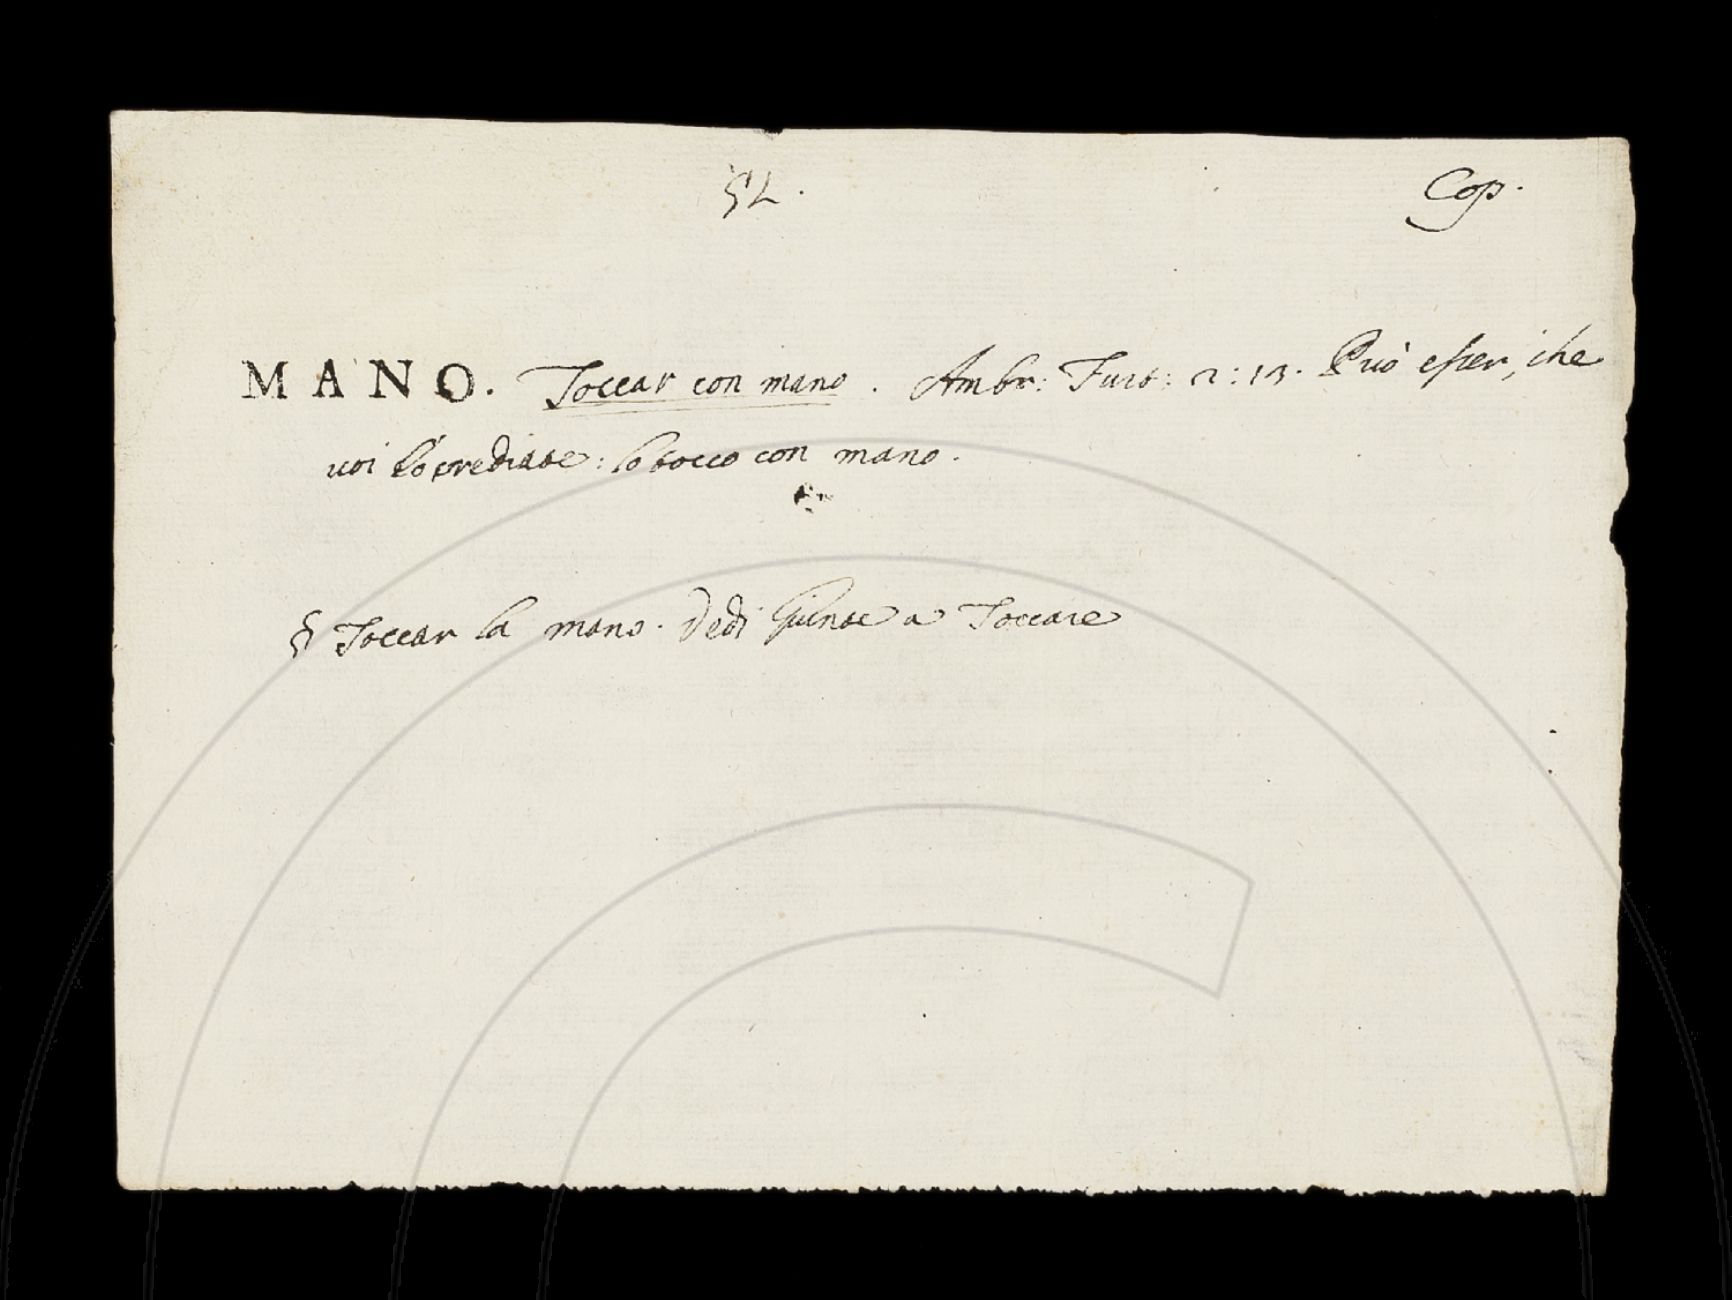 52.
Cop.
MANO. Toccar con mano. Ambr: Furt: 2:13. Può esser, che
voi lo crediate: lo tocco con mano.
§ Toccar la mano. Vedi Giunte a Toccare